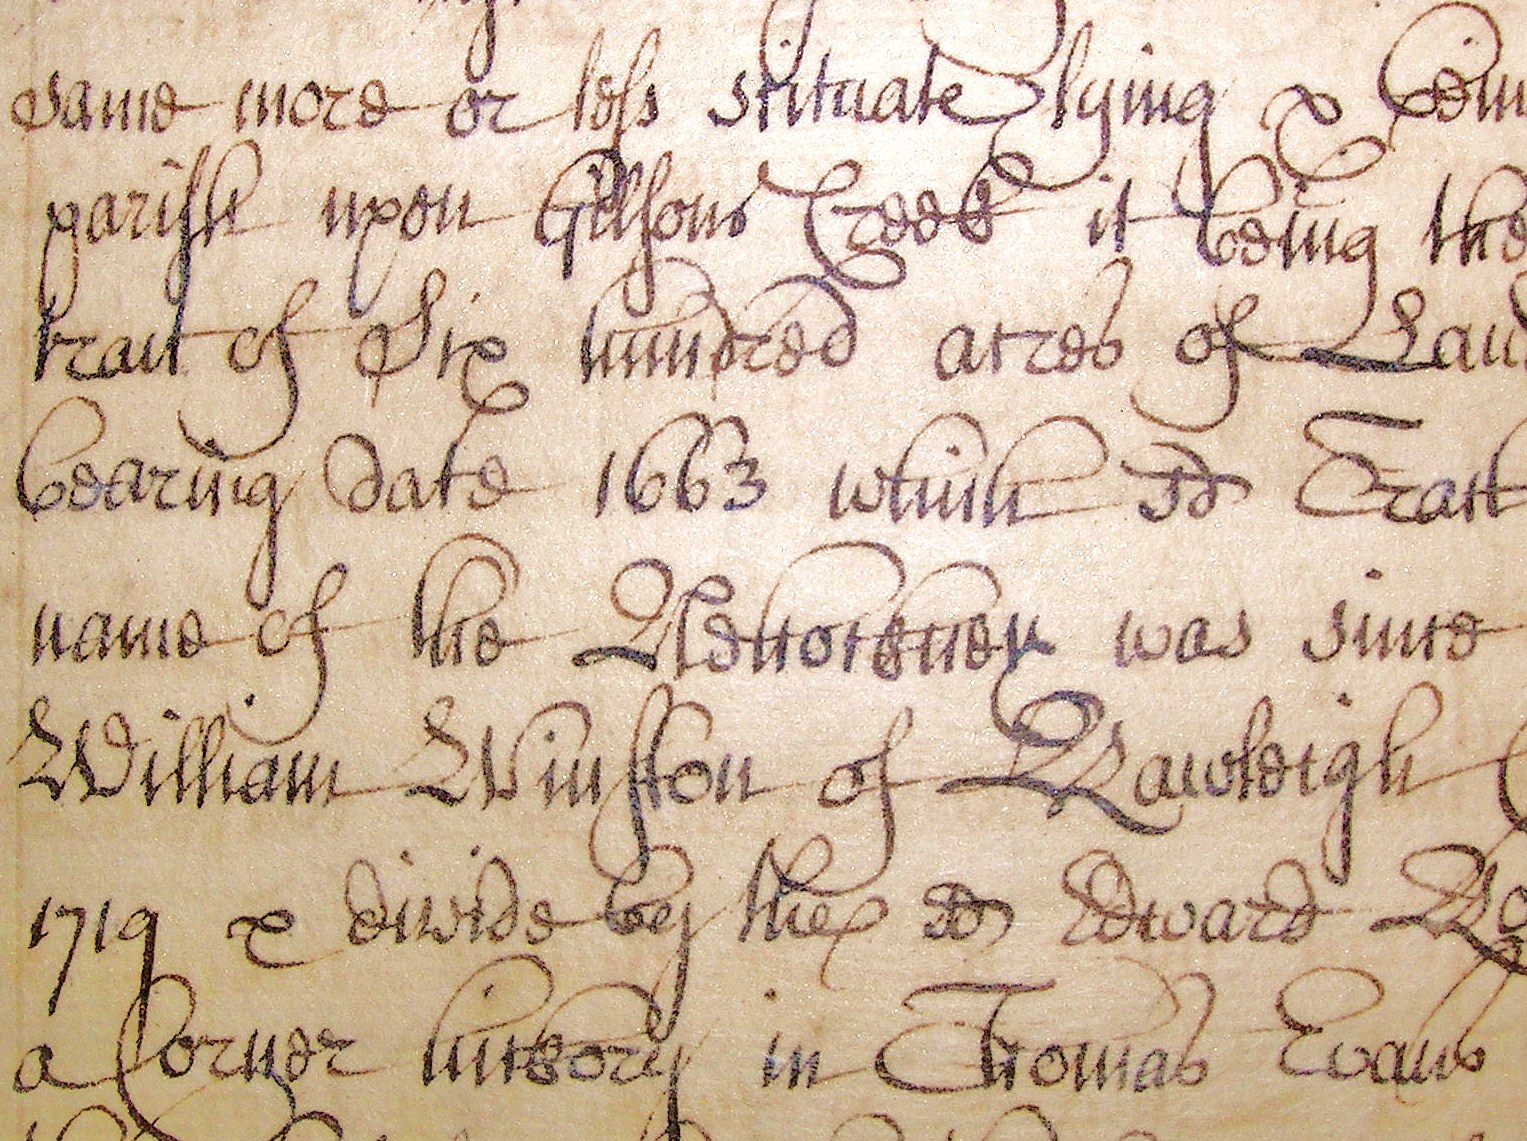 same more or less scituate lying & bein
parish upon Gilsons Creek it being the
tract of Six hundred acres of Land
bearing date 1663 which sd Tract
name of the was since
William Winston of Rawleigh
1719 & divide by the sd Edward
a Corner hickory in Thomas Evans